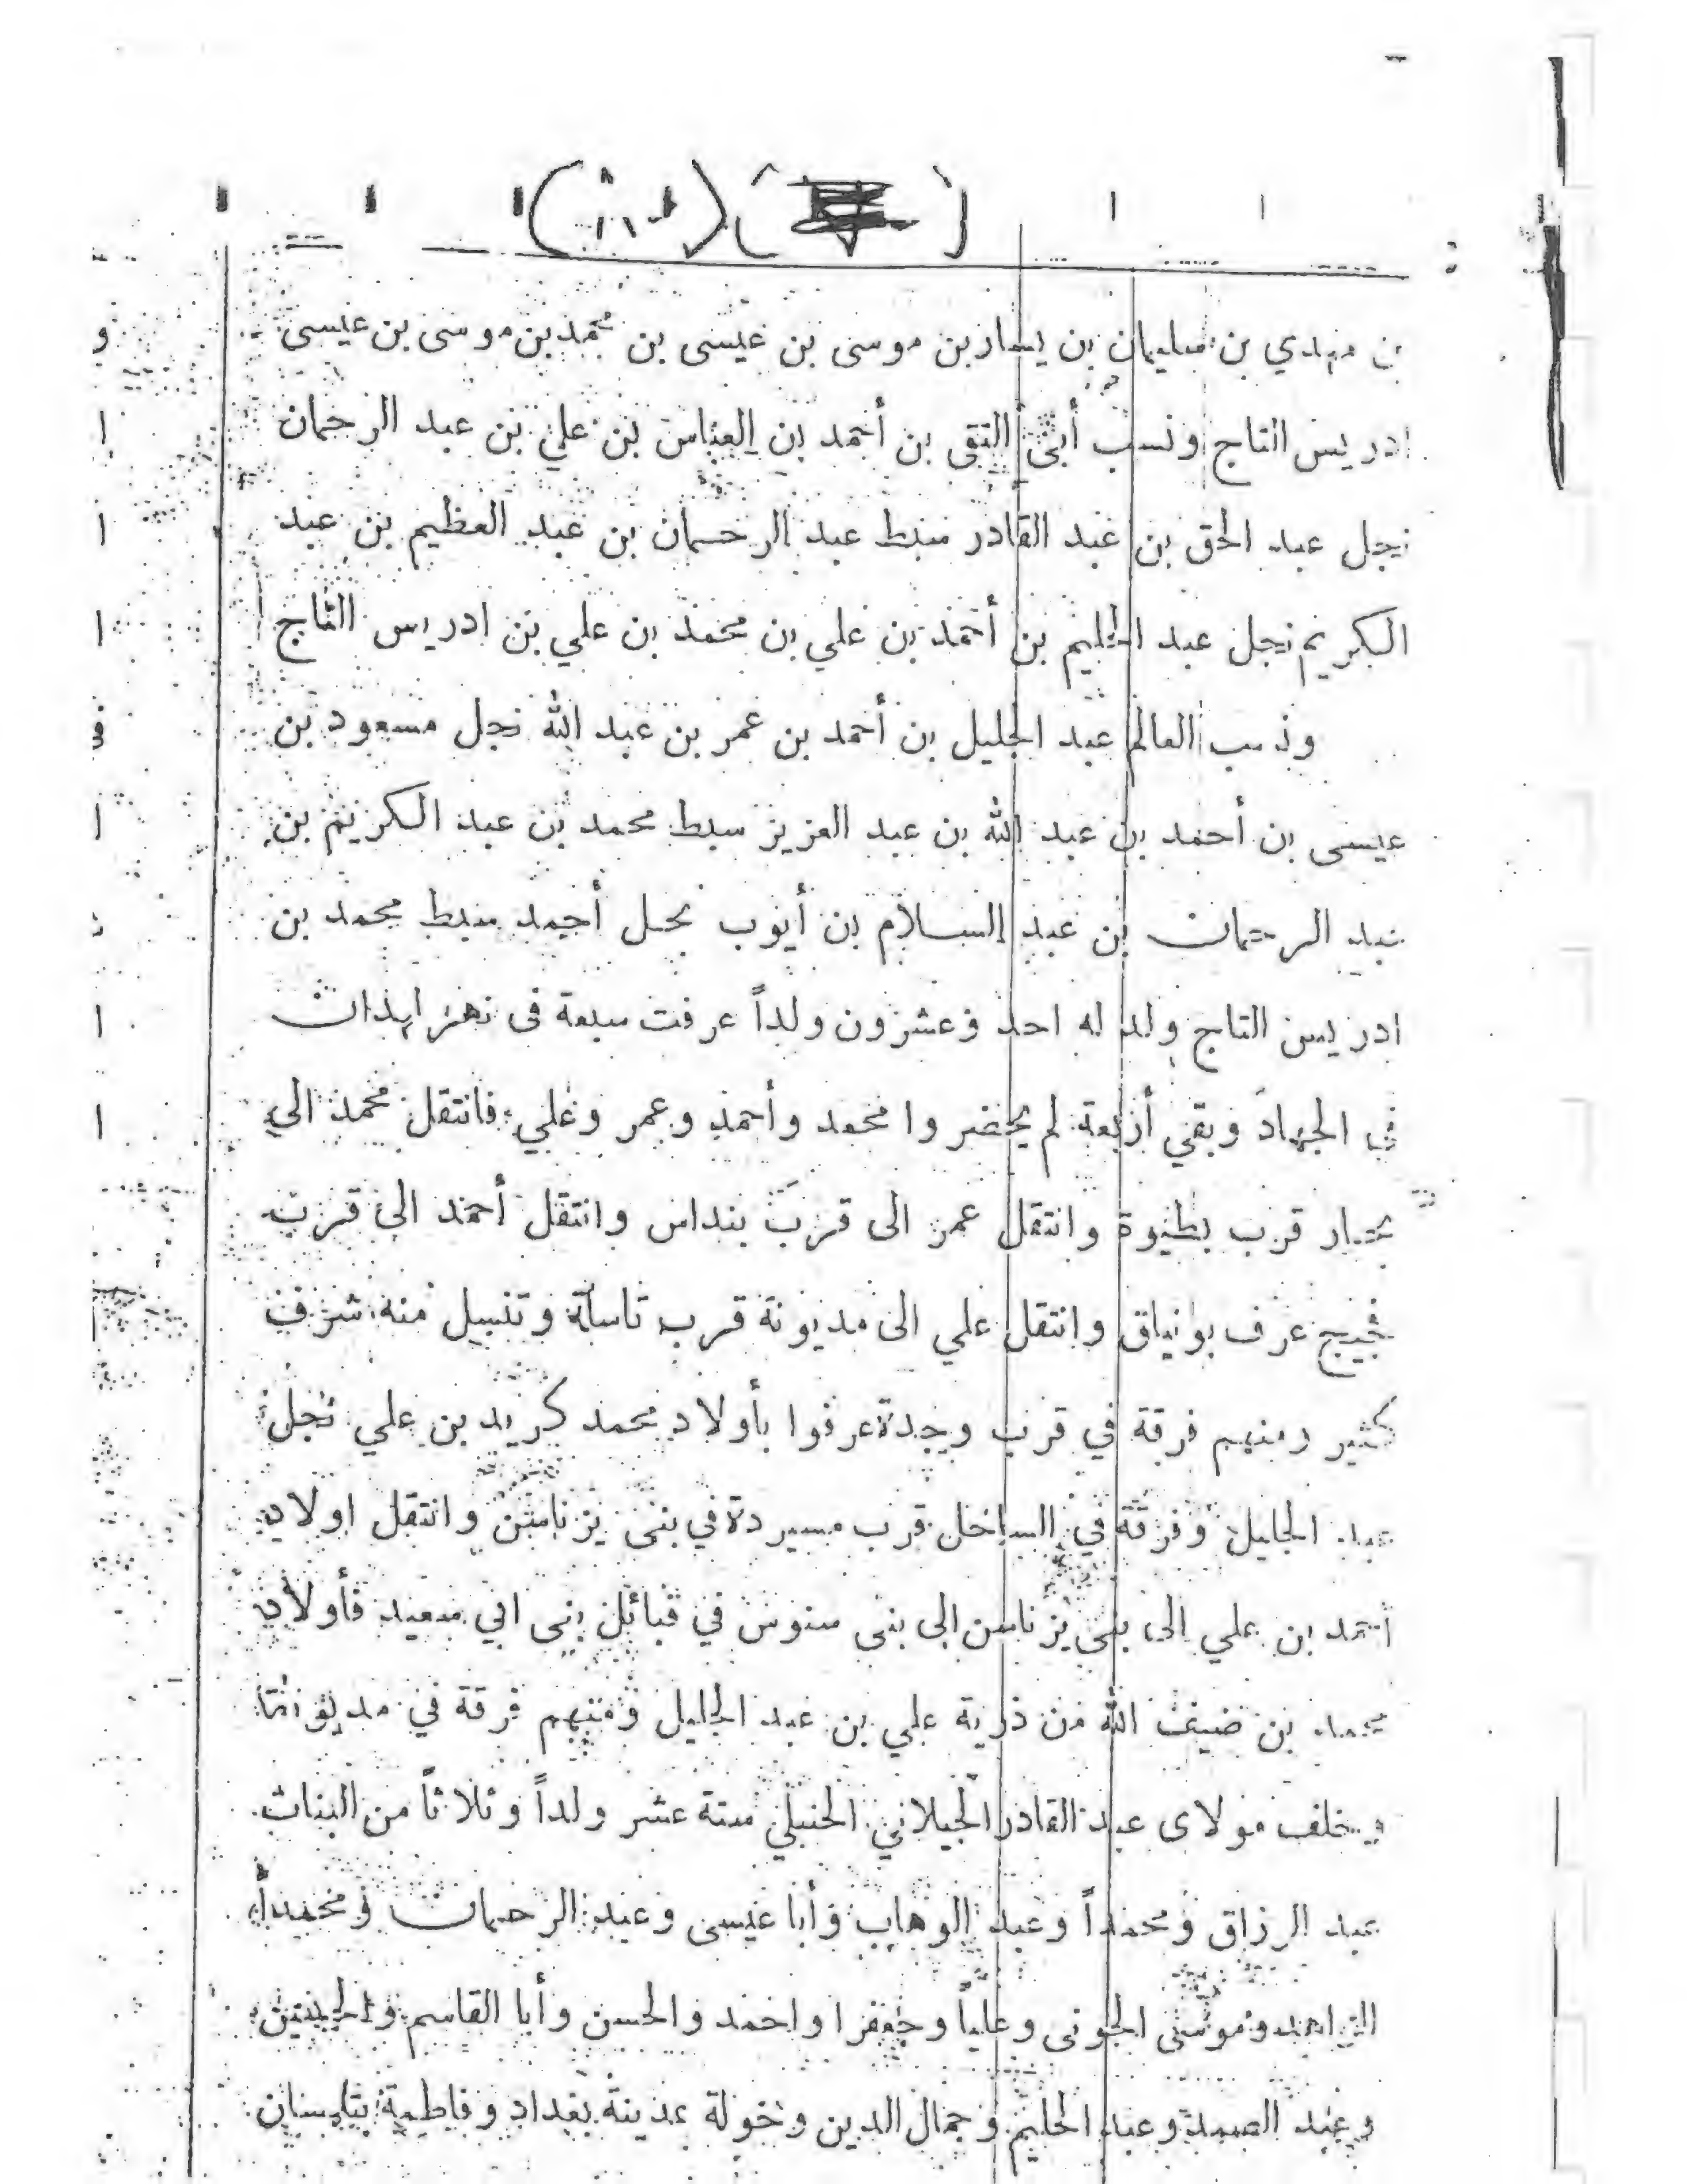 بن مهدي بن سليمان بن يسار بن موسى بن عيسى بن محمد بن موسى بن عيسى
ادريس التاج ونسب أبى التقى بن أحمد بن العباس بن علي بن عبد الرحمان
نجل عبد الحق بن عبد القادر سبط عبد الرحمان بن عبد العظيم بن عبد
الكريم نجل عبد الحليم بن أحمد بن علي بن محمد بن علي بن ادريس التاج
ونسب العالم عبد الجليل بن أحمد بن عمر بن عبد الله نجل مسعود بن
عيسى بن أحمد بن عبد الله بن عبد العزيز سبط محمد بن عبد الكريم بن
عبد الرحمان بن عبد السلام بن أيوب نجل أحمد سبط محمد بن
ادريس التاج ولد له احد وعشرون ولداً عرفت سبعة فى نهر
فى الجهاد وبقي أربعة لم يحضروا محمد وأحمد وعمر وعلي فانتقل محمد الى
قرب بطيوة وانتقل عمر الى قرب بنداس وانتقل أحمد الى قرب
عرف بوانياق وانتقل علي الى مديونة قرب تاسالة وتنسل منه شرف
كثير ومنهم فرقة في قرب وجدة عرفوا بأولاد محمد كريد بن علي نجل
عبد الجليل وفرقة في الساحل قرب مسيردة في بنى يزناسن وانتقل اولاد
أحمد بن علي الى بنى يزناسن الى بنى سنوس في قبائل بنى ابي سعيد فأولاد
محمد بن ضيف الله من ذرية علي بن عبد الجليل ومنهم فرقة في مديونة
وخلف مولاى عبد القادر الجيلاني الحنبلي ستة عشر ولداً وثلاثاً من البنات
عبد الرزاق ومحمداً وعبد الوهاب وأبا عيسى وعبد الرحمان ومحمداً
الزاهد وموسى الجونى وعلياً وجعفرا واحمد والحسن وأبا القاسم والحسين
وعبد الصمد وعبد الحليم وجمال الدين وخولة بمدينة بغداد وفاطمة بتلمسان